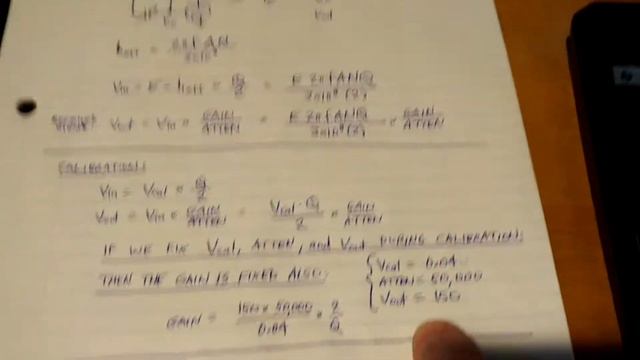 hEFF = 2πfAN / 3x10⁸
Vin = E × hEFF × Q/2 = E 2πfANQ / 3x10⁸(2)
Vout = Vin × GAIN/ATTEN = E 2πfANQ / 3x10⁸(2) × GAIN/ATTEN
CALIBRATION:
Vin = Vcal × Q/2
Vout = Vin × GAIN/ATTEN = Vcal · Q / 2 × GAIN/ATTEN
IF WE FIX Vcal, ATTEN, AND Vout DURING CALIBRATION,
THEN THE GAIN IS FIXED ALSO:
{ Vcal = 0.04
ATTEN = 50,000
Vout = 100
GAIN = 100 × 50,000 / 0.04 × 2/Q